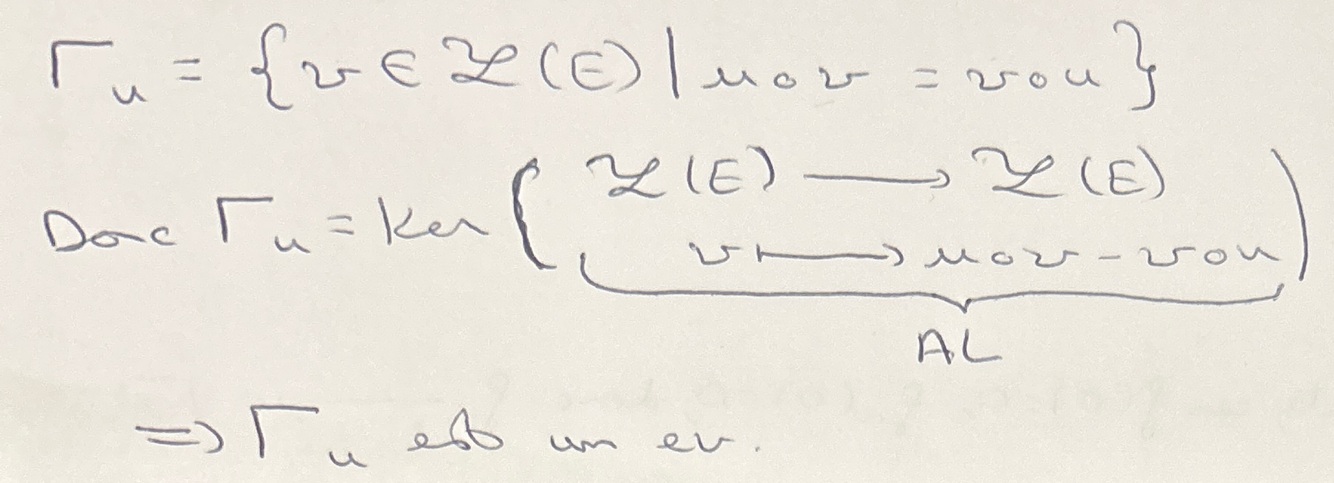 Γ_u = {v ∈ ℒ(E) | u∘v = v∘u}
Donc Γ_u = Ker ( ℒ(E) ⟶ ℒ(E)
v ⟼ u∘v - v∘u )
AL
=> Γ_u est un ev.